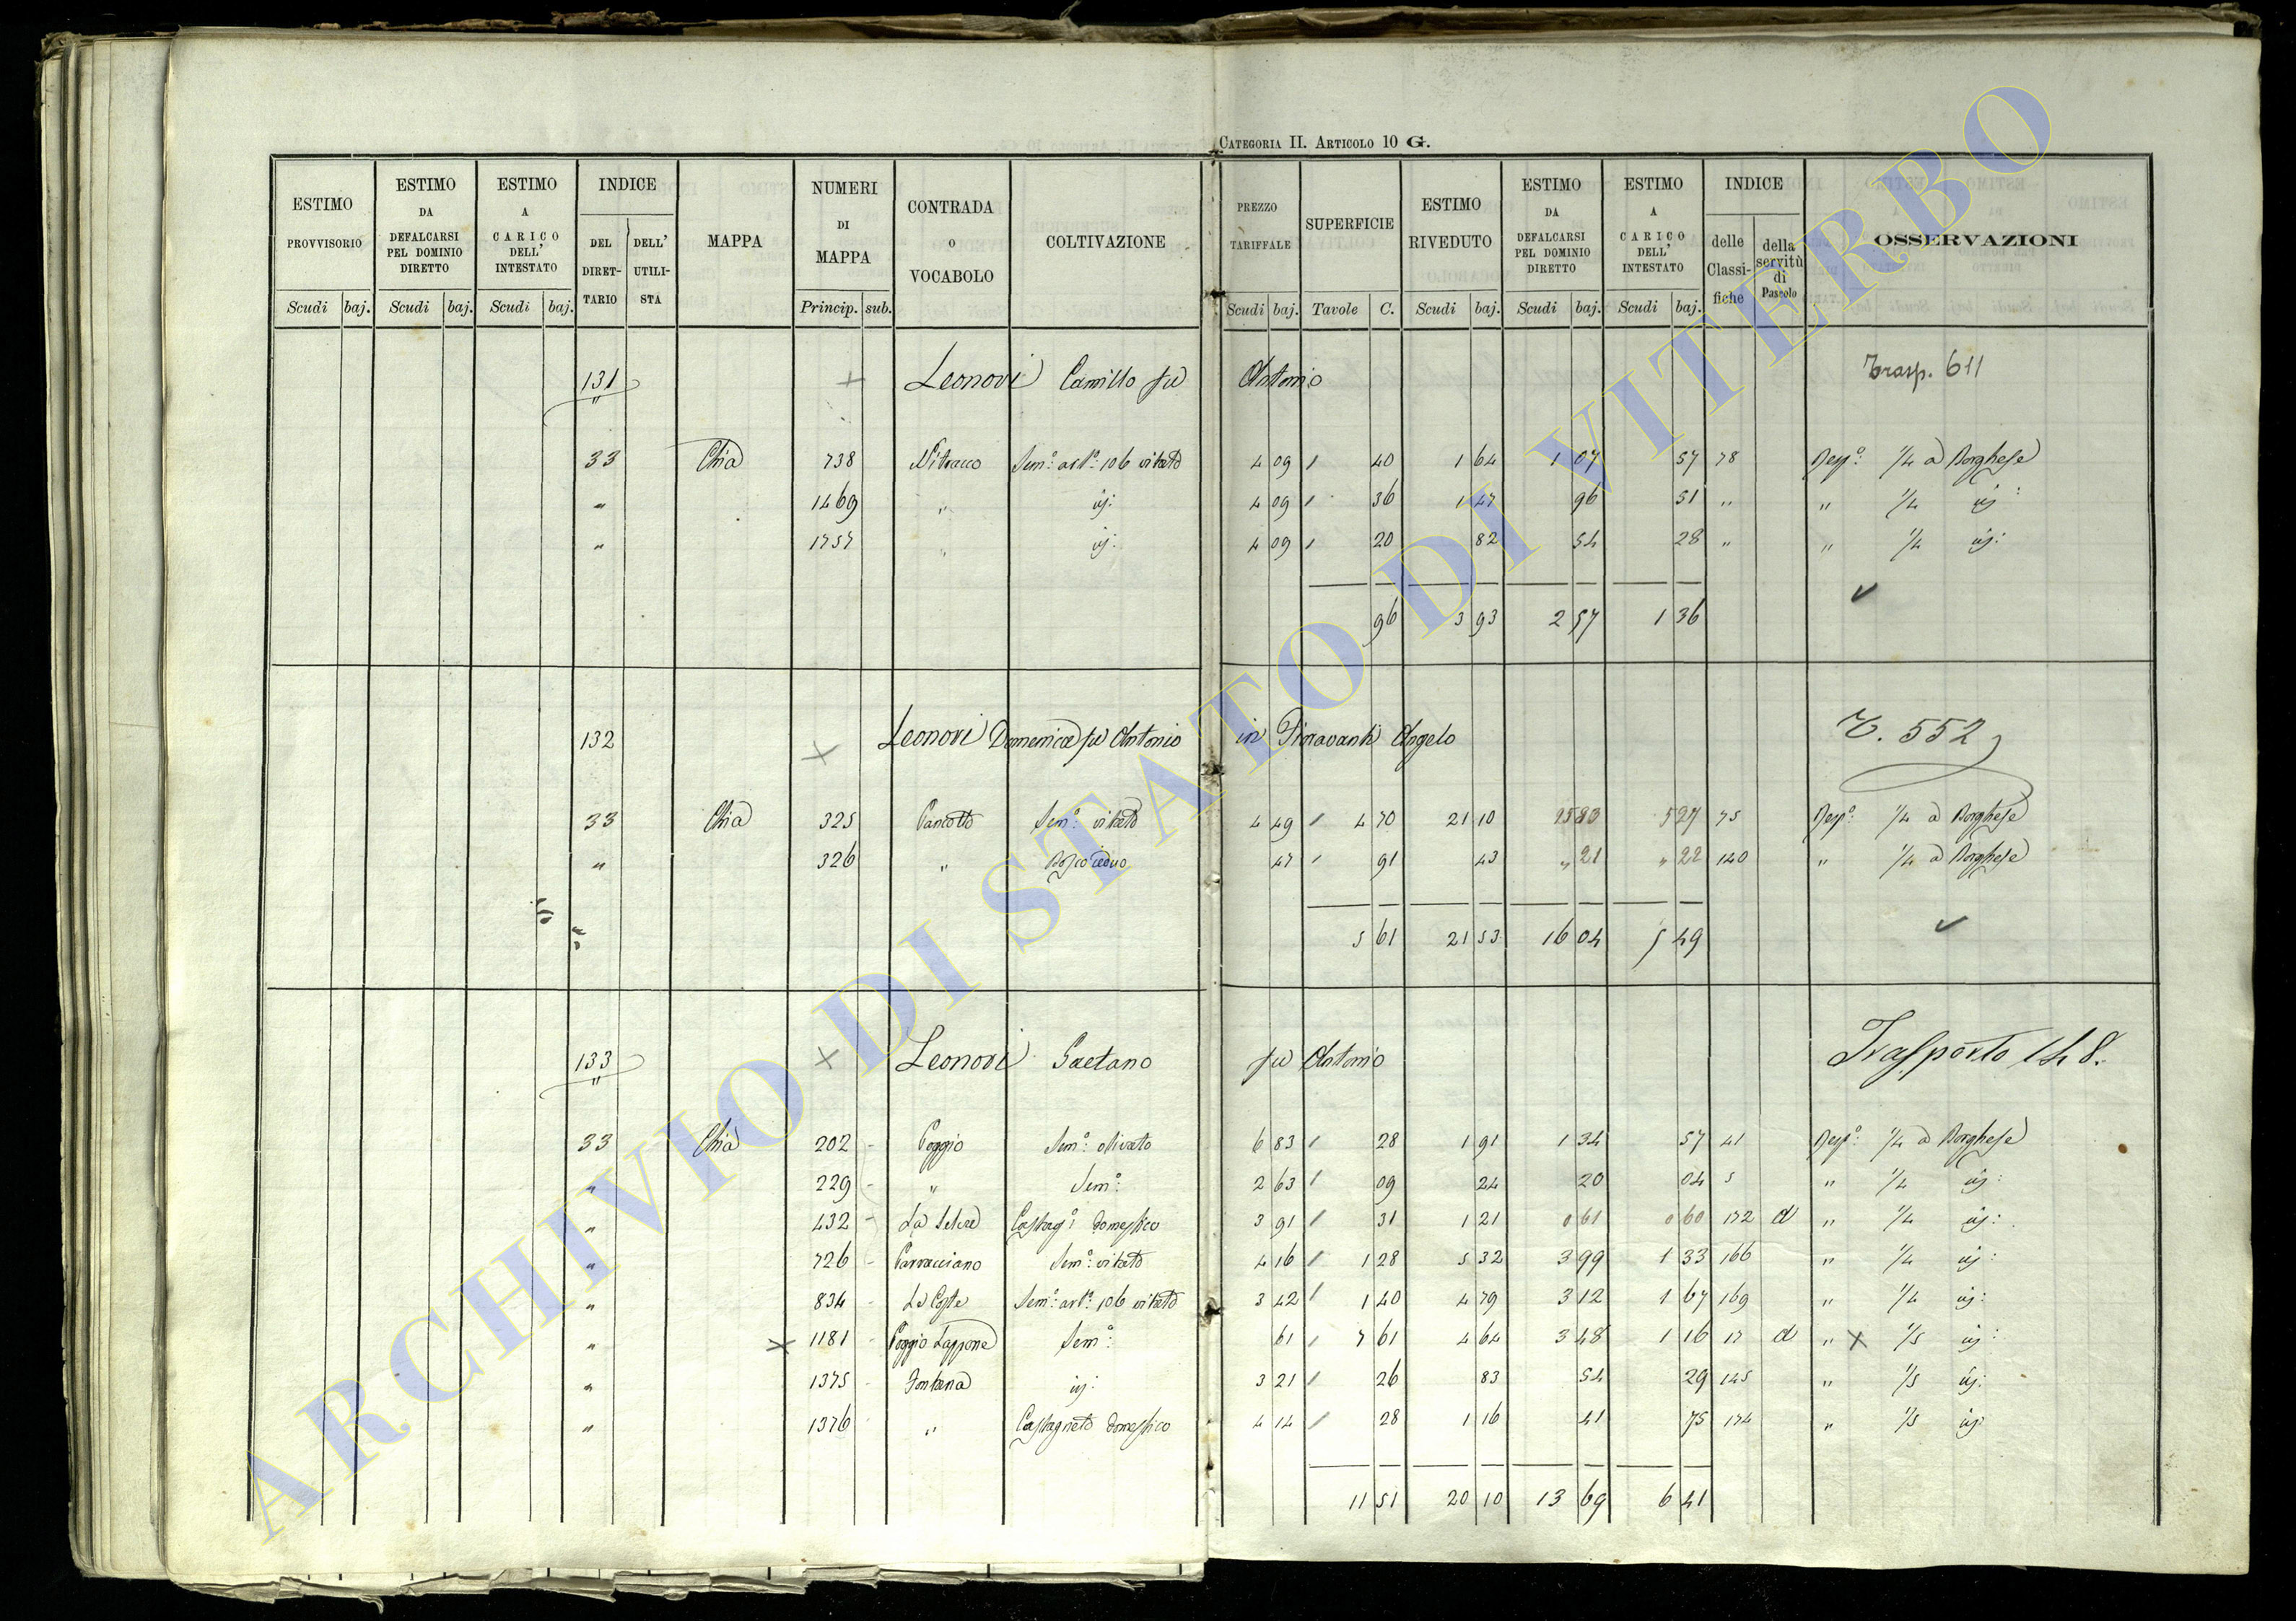 CATEGORIA II. ARTICOLO 10 G.
ESTIMO PROVVISORIO Scudi baj.
ESTIMO DA DEFALCARSI PEL DOMINIO DIRETTO Scudi baj.
ESTIMO A CARICO DELL' INTESTATO Scudi baj.
INDICE DEL DIRET-TARIO DELL' UTILI-STA
MAPPA
NUMERI DI MAPPA Princip. sub.
CONTRADA O VOCABOLO
COLTIVAZIONE
PREZZO TARIFFALE Scudi baj.
SUPERFICIE Tavole C.
ESTIMO RIVEDUTO Scudi baj.
ESTIMO DA DEFALCARSI PEL DOMINIO DIRETTO Scudi baj.
ESTIMO A CARICO DELL' INTESTATO Scudi baj.
INDICE delle Classi-fiche della servitù di Pascolo
OSSERVAZIONI
131 " Leonori Camillo fu Antonio Trasp. 611
33 Chia 738 Sem.° arb.° 106 vitato 4 09 / 40 1 64 1 07 57 78 Resp.° 1/4 a Borghese
" 1469 " id: 4 09 / 36 1 47 96 51 " " 1/4 id:
" 1757 " id: 4 09 / 20 82 54 28 " " 1/4 id:
96 3 93 2 57 1 36
132 Leonori Domenica fu Antonio in Fioravanti Angelo T. 552
33 Chia 325 Pancotto Sem.° vitato 4 49 / 4 70 21 10 15 83 5 27 75 Resp.° 1/4 a Borghese
" 326 " Bosco ceduo 47 / 91 43 " 21 " 22 140 " 1/4 a Borghese
5 61 21 53 16 04 5 49
133 " Leonori Gaetano fu Antonio Trasporto 148.
33 Chia 202 Poggio Sem.° olivato 6 83 / 28 1 91 1 34 57 41 Resp.° 1/4 a Borghese
" 229 " Sem.° 2 63 / 09 24 20 04 5 " 1/4 id:
" 432 La Selva Castag.° domestico 3 91 / 31 1 21 0 61 0 60 172 d " 1/4 id:
" 726 Parracciano Sem.° vitato 4 16 / 1 28 5 32 3 99 1 33 166 " 1/4 id:
" 834 Le Coste Sem.° arb.° 106 vitato 3 42 / 1 40 4 79 3 12 1 67 169 " 1/4 id:
" 1181 Poggio Sem.° 61 / 7 61 4 64 3 48 1 16 17 d " 1/5 id:
" 1375 Fontana id: 3 21 / 26 83 54 29 145 " 1/5 id:
" 1376 " Castagneto domestico 4 14 / 28 1 16 41 75 174 " 1/5 id:
11 51 20 10 13 69 6 41
ARCHIVIO DI STATO DI VITERBO